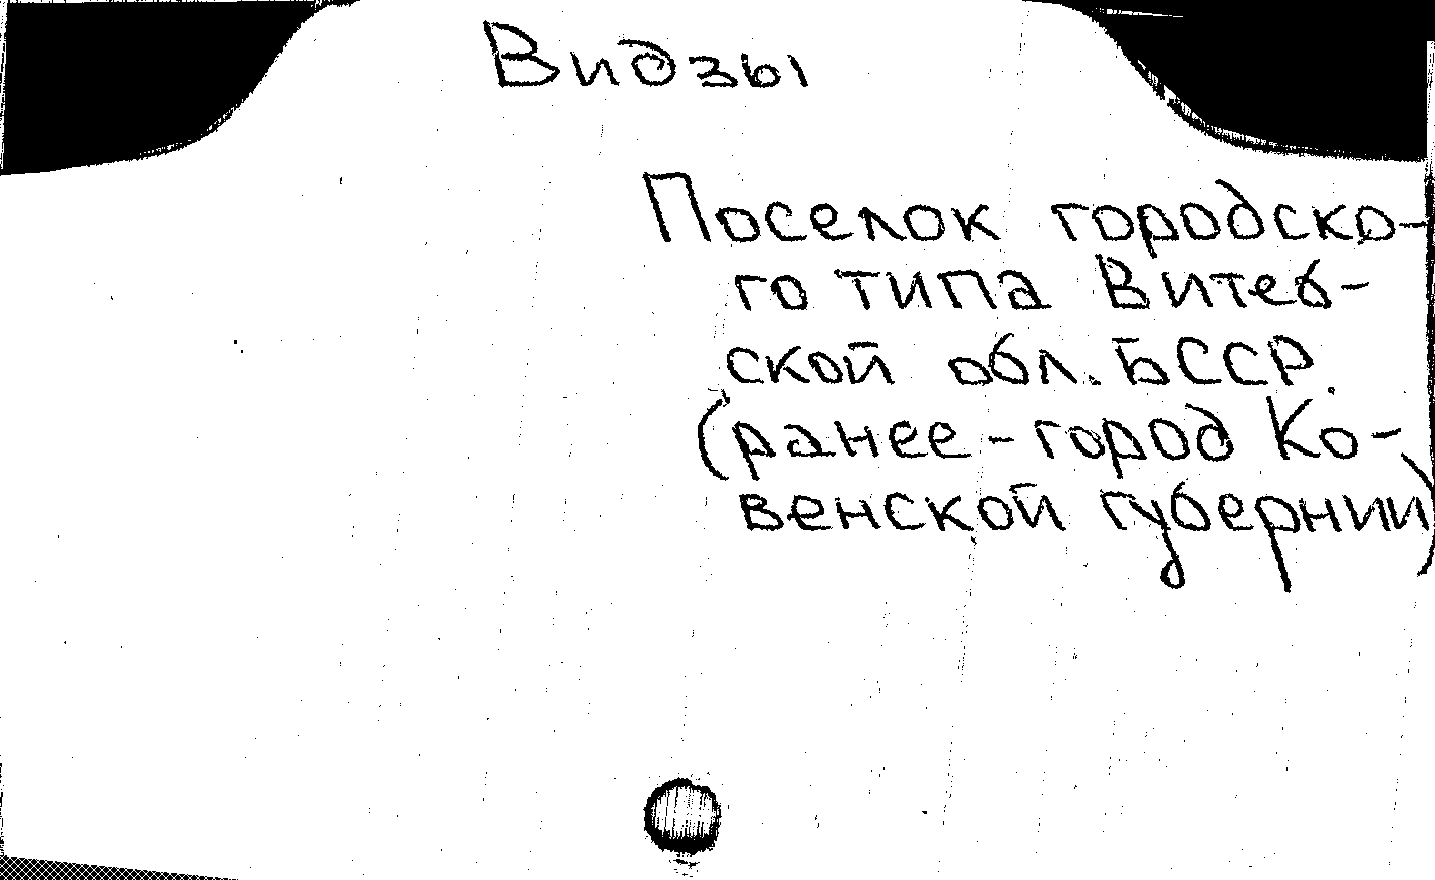 Видзы
Поселок городско-
го типа Витеб-
ской обл. БССР.
(ранее - город Ко-
венской губернии)